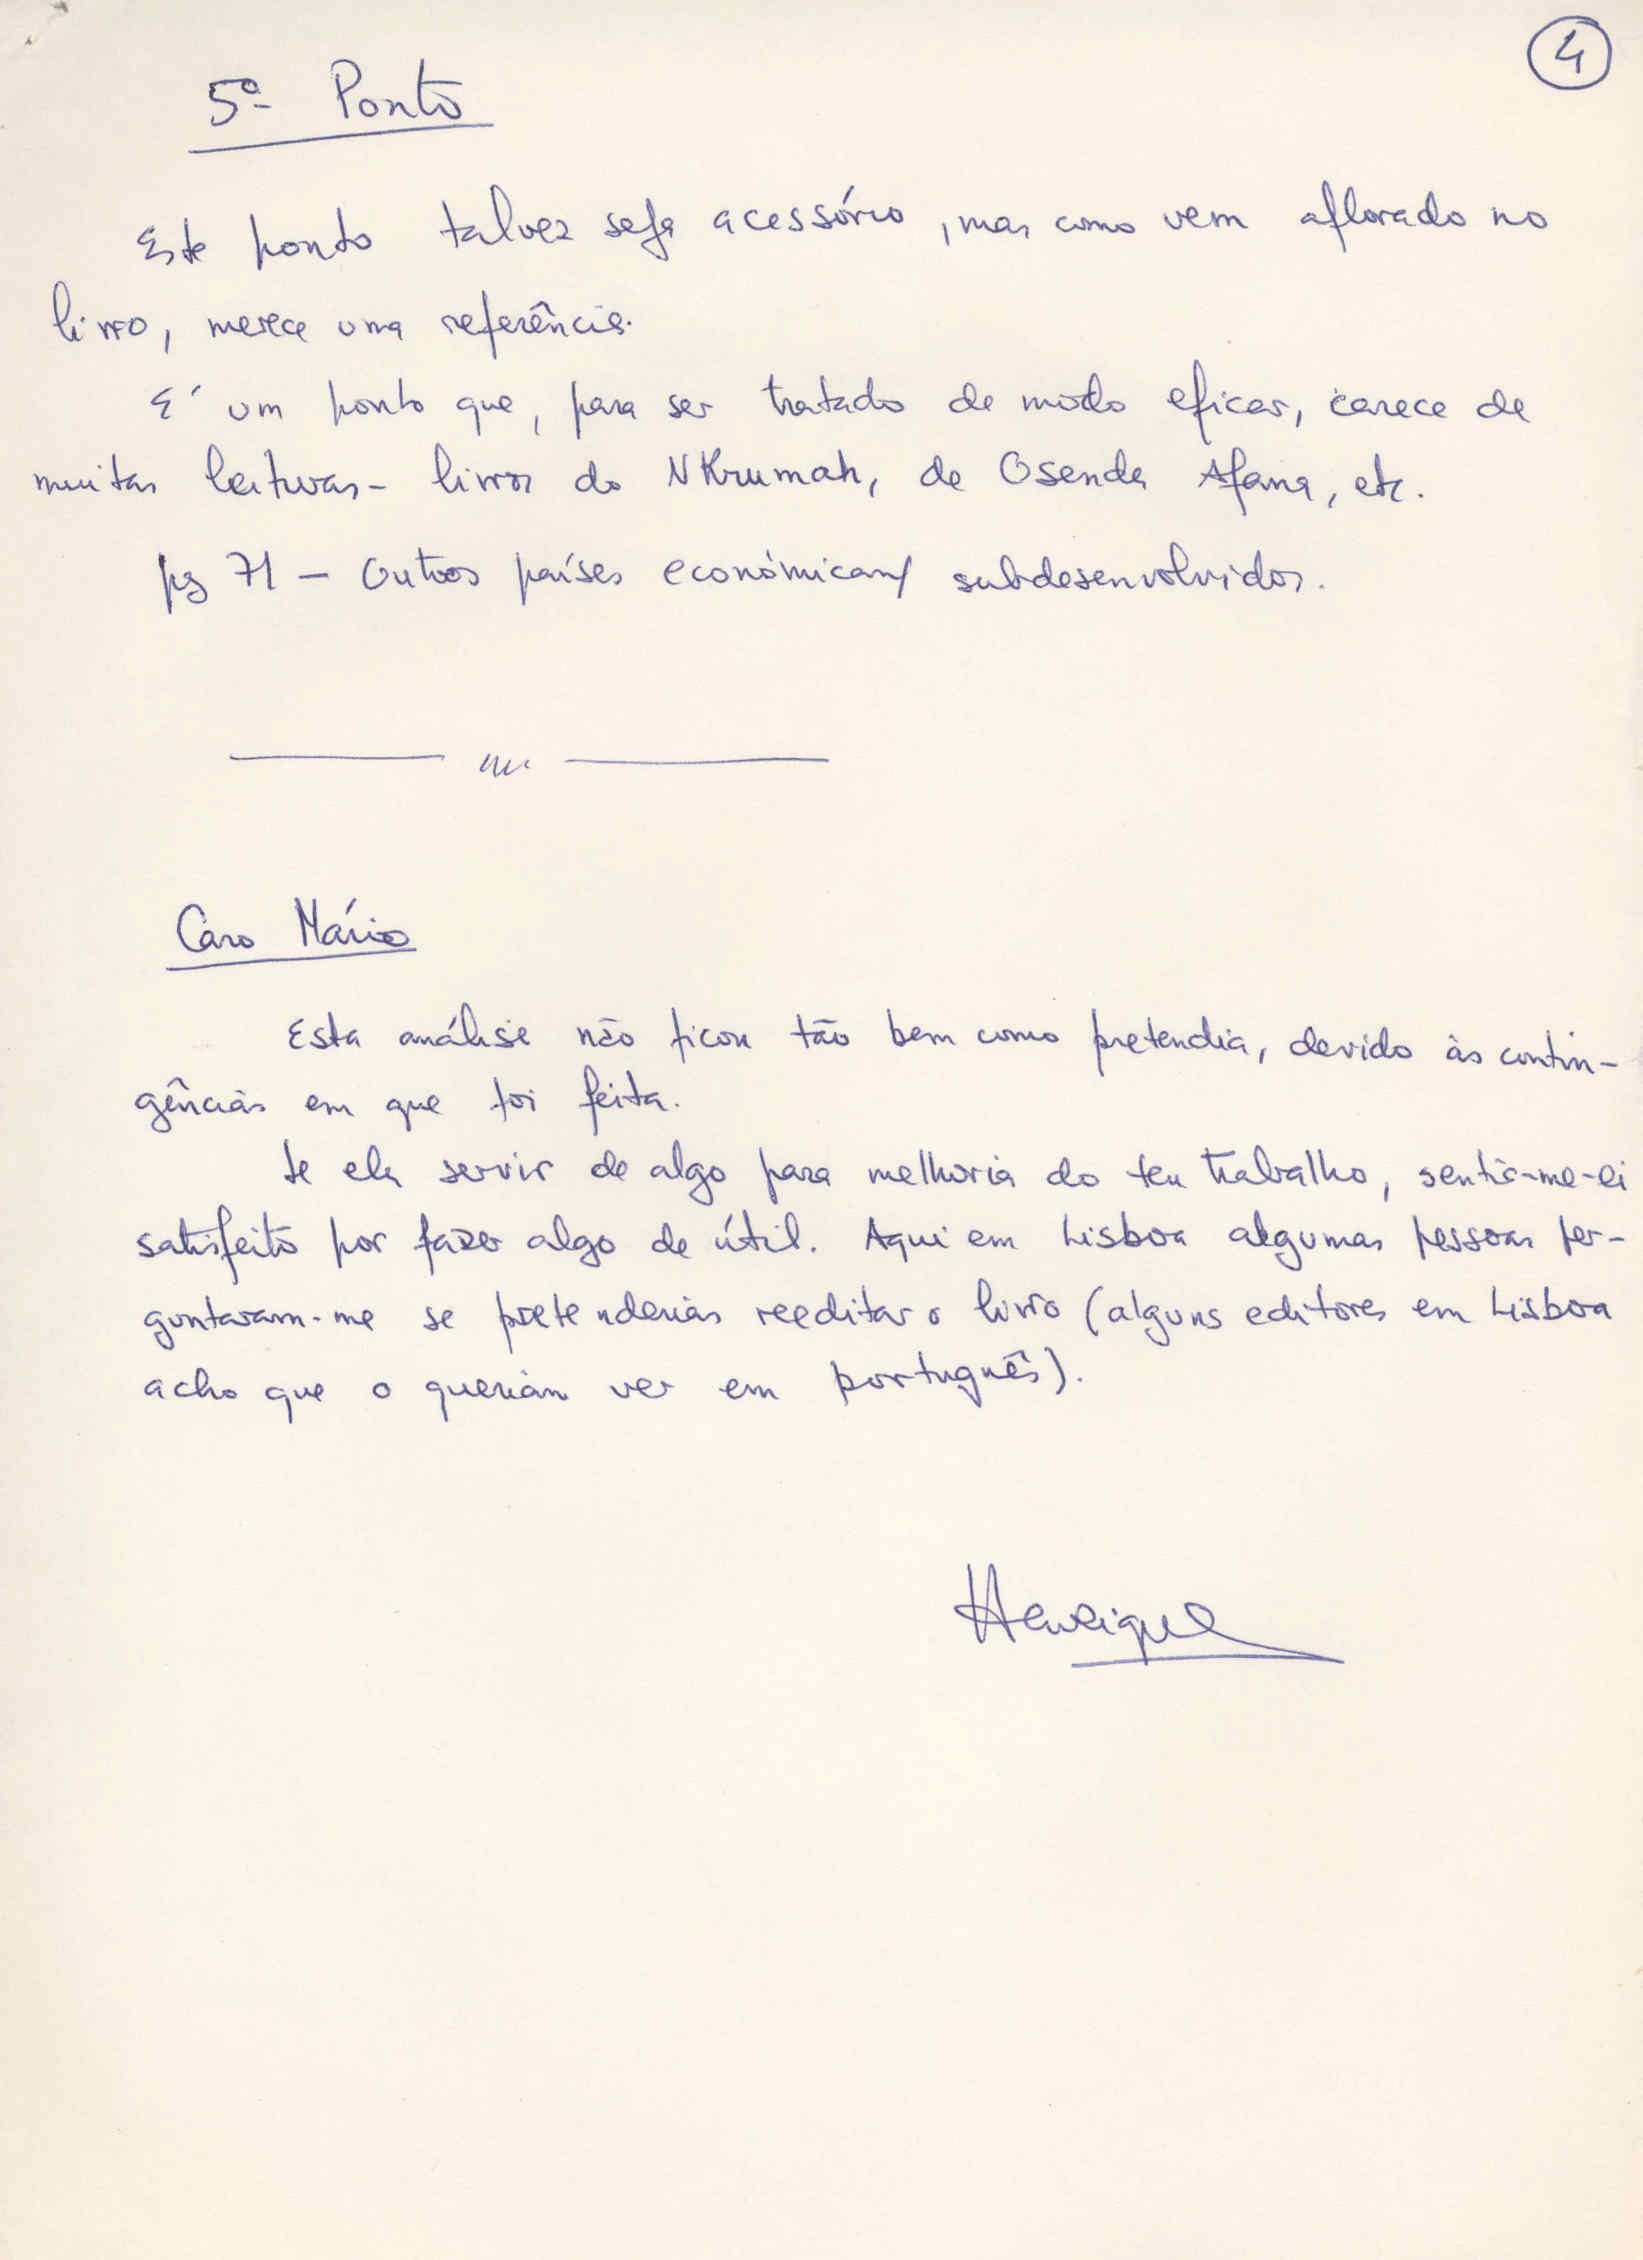 4
5º Ponto
Este ponto talvez seja acessório, mas como vem aflorado no
livro, merece uma referência.
E' um ponto que, para ser tratado de modo eficaz, carece de
muitas leituras - livros do NKrumah, de Osende Afana, etc.
pg 71 - Outros países económica/ subdesenvolvidos.
Caro Mário
Esta análise não ficou tão bem como pretendia, devido às contin-
gências em que foi feita.
Se ela servir de algo para melhoria do teu trabalho, sentir-me-ei
satisfeito por fazer algo de útil. Aqui em Lisboa algumas pessoas per-
guntaram-me se pretenderias reeditar o livro (alguns editores em Lisboa
acho que o queriam ver em português).
Henrique